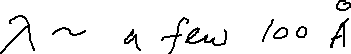 λ ~ a few 100 Å